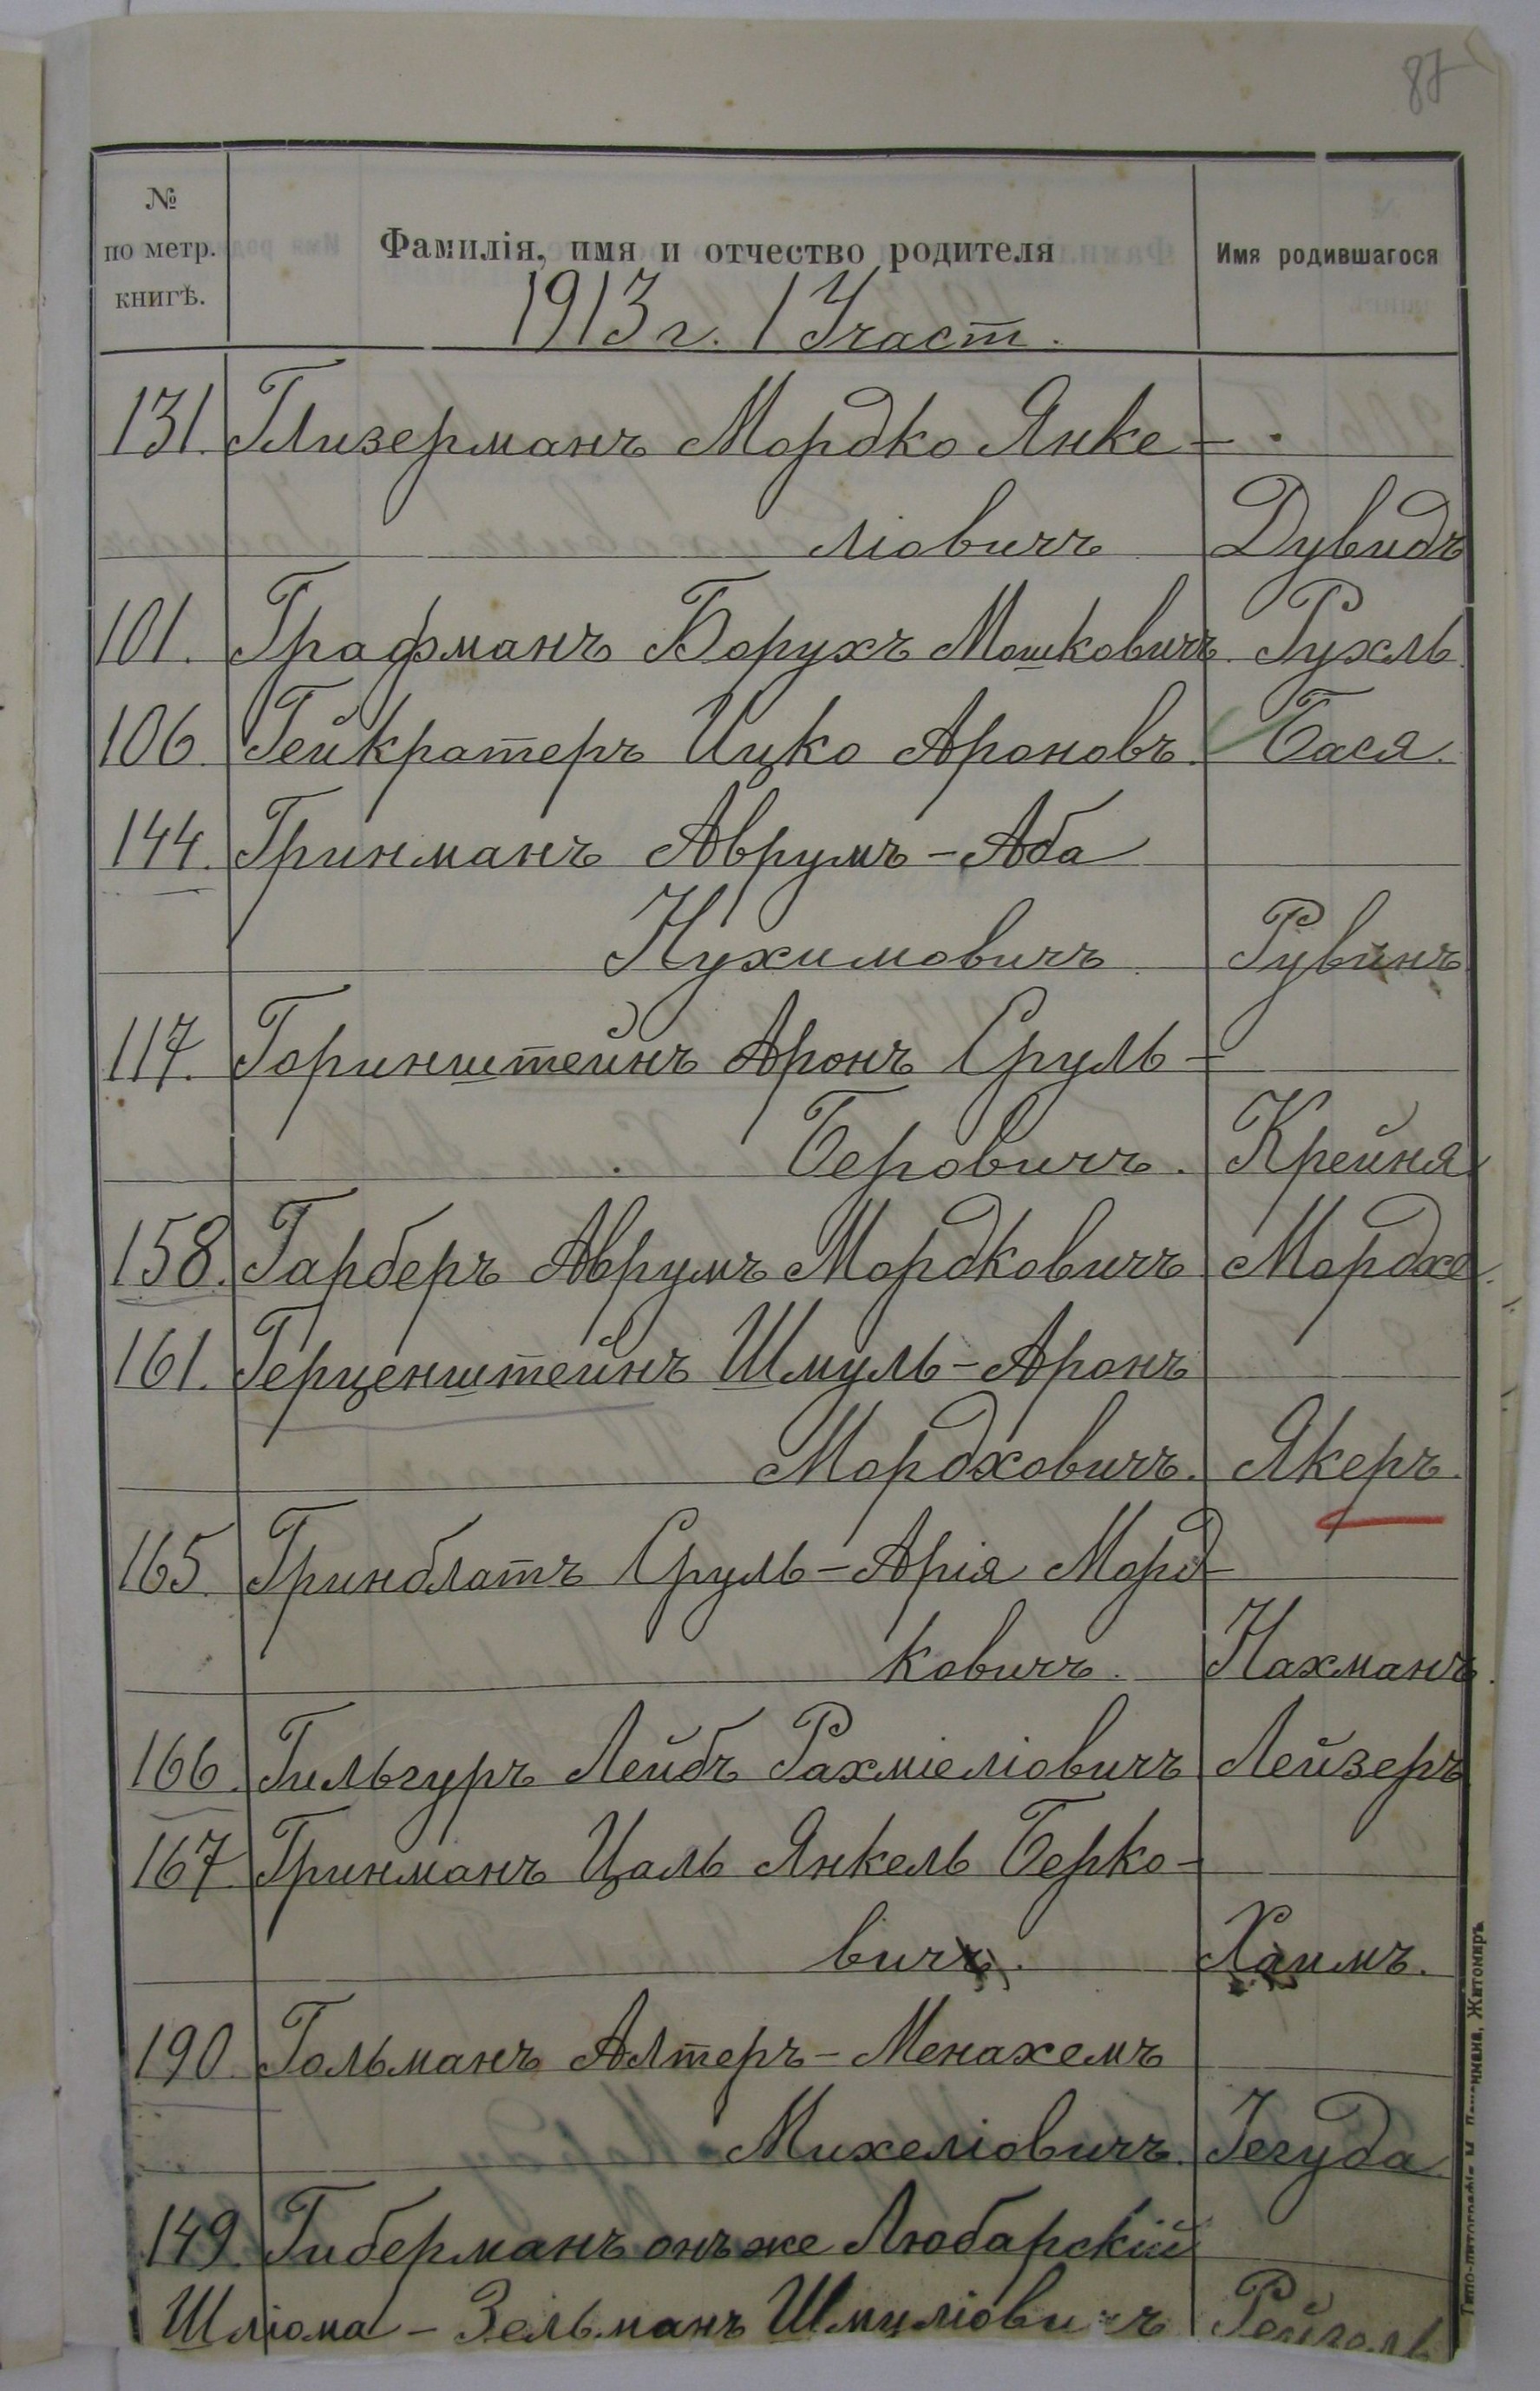 87
№
по метр.
книгѣ.
Фамилія, имя и отчество родителя
Имя родившагося
1913 г. 1 Участ.
131. Глизерманъ Мордко Янке-
ліовичъ Дувидъ
101. Графманъ Борухъ Мошковичъ. Рухль
106. Гейкратеръ Ицко Ароновъ. Бася.
144. Гринманъ Аврумъ-Аба
Нухимовичъ Рувинъ
117. Горинштейнъ Аронъ Сруль-
Беровичъ. Крейня
158. Гарберъ Аврумъ Мордковичъ Мордхе
161. Герценштейнъ Шмуль-Аронъ
Мордховичъ. Якеръ.
165. Гринблатъ Сруль-Арія Морд-
ковичъ. Нахманъ.
166. Гильгуръ Лейбъ Рахміеліовичъ Лейзеръ
167 Гринманъ Цаль Янкель Берко-
вичъ. Хаимъ.
190. Гольманъ Алтеръ-Менахемъ
Михеліовичъ. Іегуда.
149. Гиберманъ онъ же Любарскій
Шліома-Зельманъ Шмуліовичъ Рейзель
Житомиръ